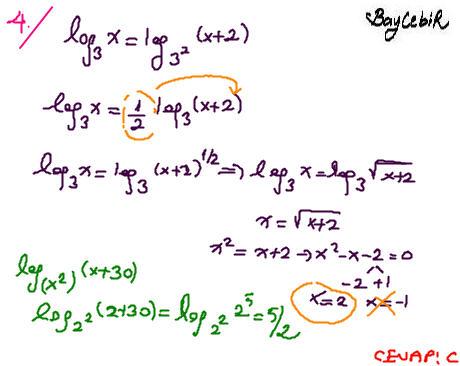 4. log₃ x = log₃² (x+2)
BayCebir
log₃ x = 1/2 log₃ (x+2)
log₃ x = log₃ (x+2)^1/2 ⇒ log₃ x = log₃ √x+2
x = √x+2
x² = x+2 → x²-x-2=0
-2 +1
x=2 x=-1
log(x²) (x+30)
log₂² (2+30) = log₂² 2⁵ = 5/2
CEVAP: C